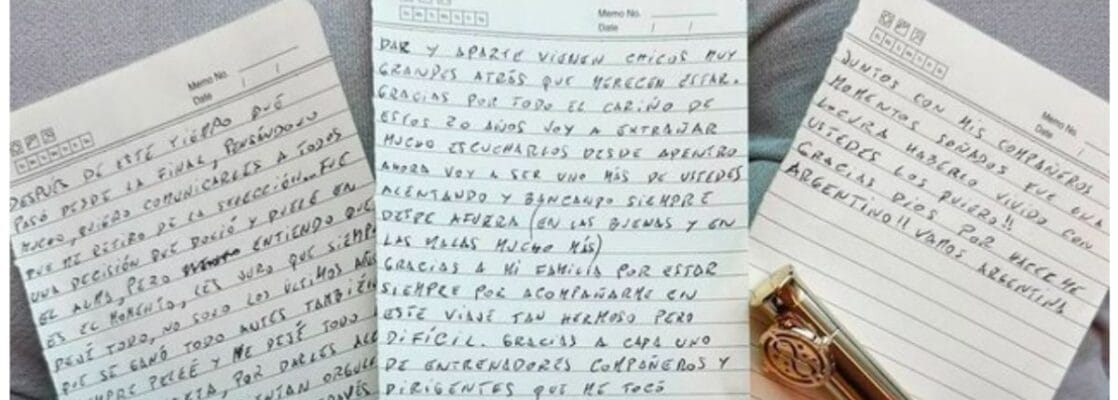 Memo No.
Date / /
DESPUÉS DE ESTE TIEMPO QUE
PASÓ DESDE LA FINAL, PENSÁNDOLO
MUCHO, QUIERO COMUNICARLES A TODOS
QUE ME RETIRO DE LA SELECCIÓN... FUE
UNA DECISIÓN QUE DOLIÓ Y DUELE EN
EL ALMA, PERO ENTIENDO QUE
ES EL MOMENTO, LES JURO QUE SIEMPRE
DEJÉ TODO, NO SOLO LOS ULTIMOS AÑOS
QUE SE GANÓ TODO ANTES TAMBIÉN
PELEÉ Y ME DEJÉ TODO
POR DARLES
Memo No.
Date / /
DAR Y APARTE VIENEN CHICOS MUY
GRANDES ATRÁS QUE MERECEN ESTAR.
GRACIAS POR TODO EL CARIÑO DE
ESTOS 20 AÑOS VOY A EXTRAÑAR
MUCHO ESCUCHARLOS DESDE ADENTRO
AHORA VOY A SER UNO MÁS DE USTEDES
ALENTANDO Y BANCANDO SIEMPRE
DESDE AFUERA (EN LAS BUENAS Y EN
LAS MALAS MUCHO MÁS)
GRACIAS A MI FAMILIA POR ESTAR
SIEMPRE POR ACOMPAÑARME EN
ESTE VIAJE TAN HERMOSO PERO
DIFÍCIL. GRACIAS A CADA UNO
DE ENTRENADORES COMPAÑEROS Y
DIRIGENTES QUE ME TOCÓ
Memo No.
Date / /
JUNTOS CON MIS COMPAÑEROS
MOMENTOS SOÑADOS FUE UNA
LOCURA HABERLO VIVIDO CON
USTEDES LOS QUIERO!!
GRACIAS DIOS POR HACERME
ARGENTINO!! VAMOS ARGENTINA